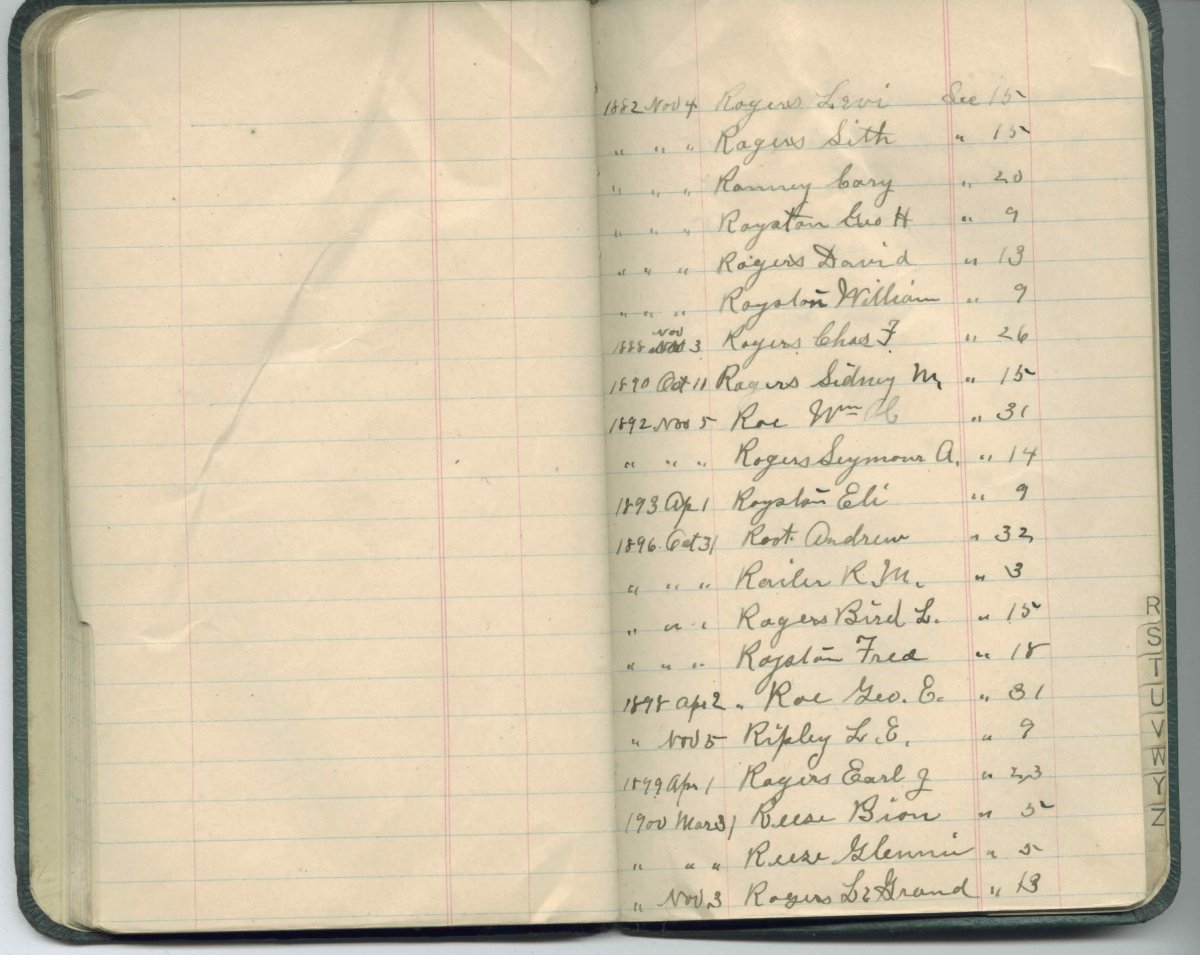 1882 Nov 4 Rogers Levi Sec 15
" " " Rogers Sith " 15
" " " Ranney Cory " 20
" " " Royston Geo H " 9
" " " Rogers David " 13
" " " Royston William " 9
Nov
1888 3 Rogers Chas F " 26
1890 Oct 11 Rogers Sidney M, " 15
1892 Nov 5 Roe Wm H " 31
" " " Rogers Seymour A. " 14
1893 Ap 1 Royston Eli " 9
1896 Oct 31 Root Andrew " 32
" " " R. M. " 3
" " " Rogers Bird L. " 15
" " " Royston Fred " 18
1898 Apr 2 " Roe Geo. E. " 31
" Nov 5 Ripley L. E. " 9
1899 Apr 1 Rogers Earl J " 23
1900 Mar 31 Reese Bion " 5
" " " Reese Glennie " 5
" Nov 3 Rogers Le Grand " 13
R
S
T
U
V
W
Y
Z